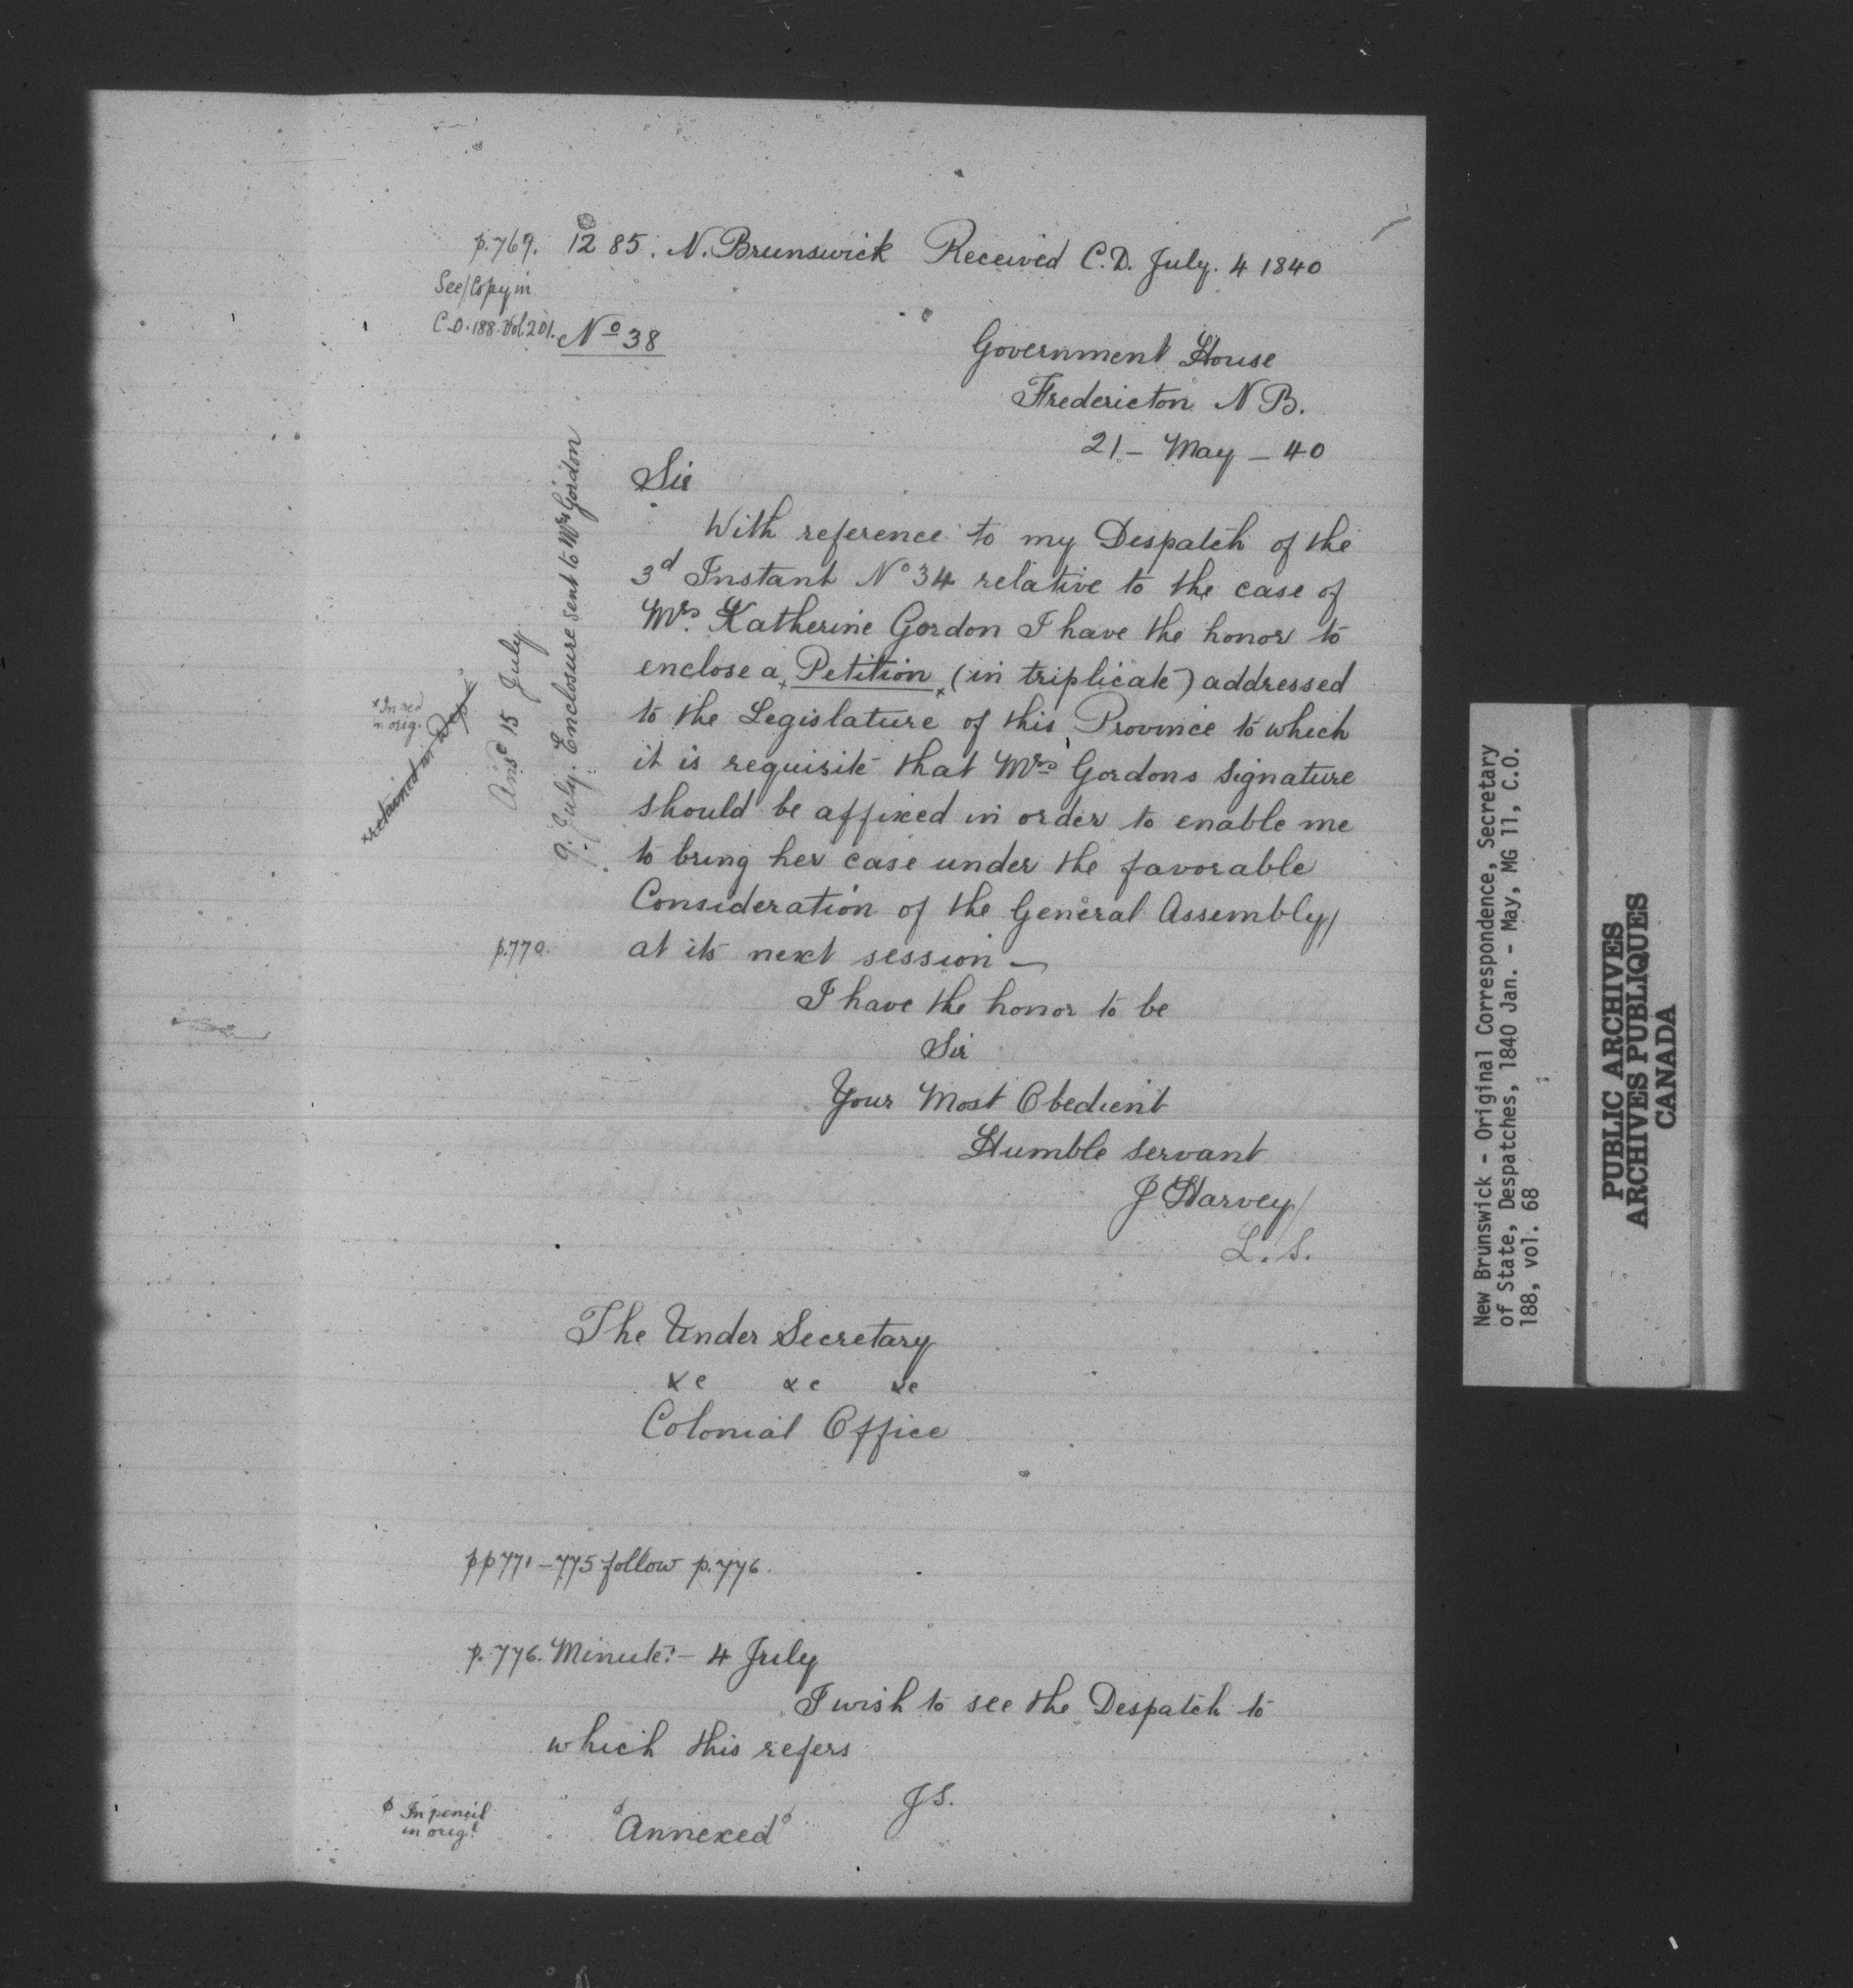 p.769. 1285. N. Brunswick Received C.D. July. 4 1840
See/Copy in
C.O. 188. Vol 201. Nº 38
Government House
Fredericton N B.
21 – May – 40
Sir
With reference to my Despatch of the
3d Instant Nº 34 relative to the case of
Mrs. Katherine Gordon I have the honor to
enclose a x Petition x (in triplicate) addressed
to the Legislature of this Province to which
it is requisite that Mrs Gordons Signature
should be affixed in order to enable me
to bring her case under the favorable
Consideration of the General Assembly/
p.770. at its next session –
I have the honor to be
Sir
Your Most Obedient
Humble servant
J Harvey/
L.S.
9. July. Enclosure sent to Mrs Gordon
Ansd 15 July
x In red
in orig.
x retained in Dept x
The Under Secretary
&c &c &c
Colonial Office
pp 771–775 follow p.776.
p.776. Minute:– 4 July
I wish to see the Despatch to
which this refers
JS.
ϕ In pencil
in orig.l
ϕ Annexed ϕ
New Brunswick - Original Correspondence, Secretary
of State, Despatches, 1840 Jan. - May, MG 11, C.O.
188, vol. 68
PUBLIC ARCHIVES
ARCHIVES PUBLIQUES
CANADA